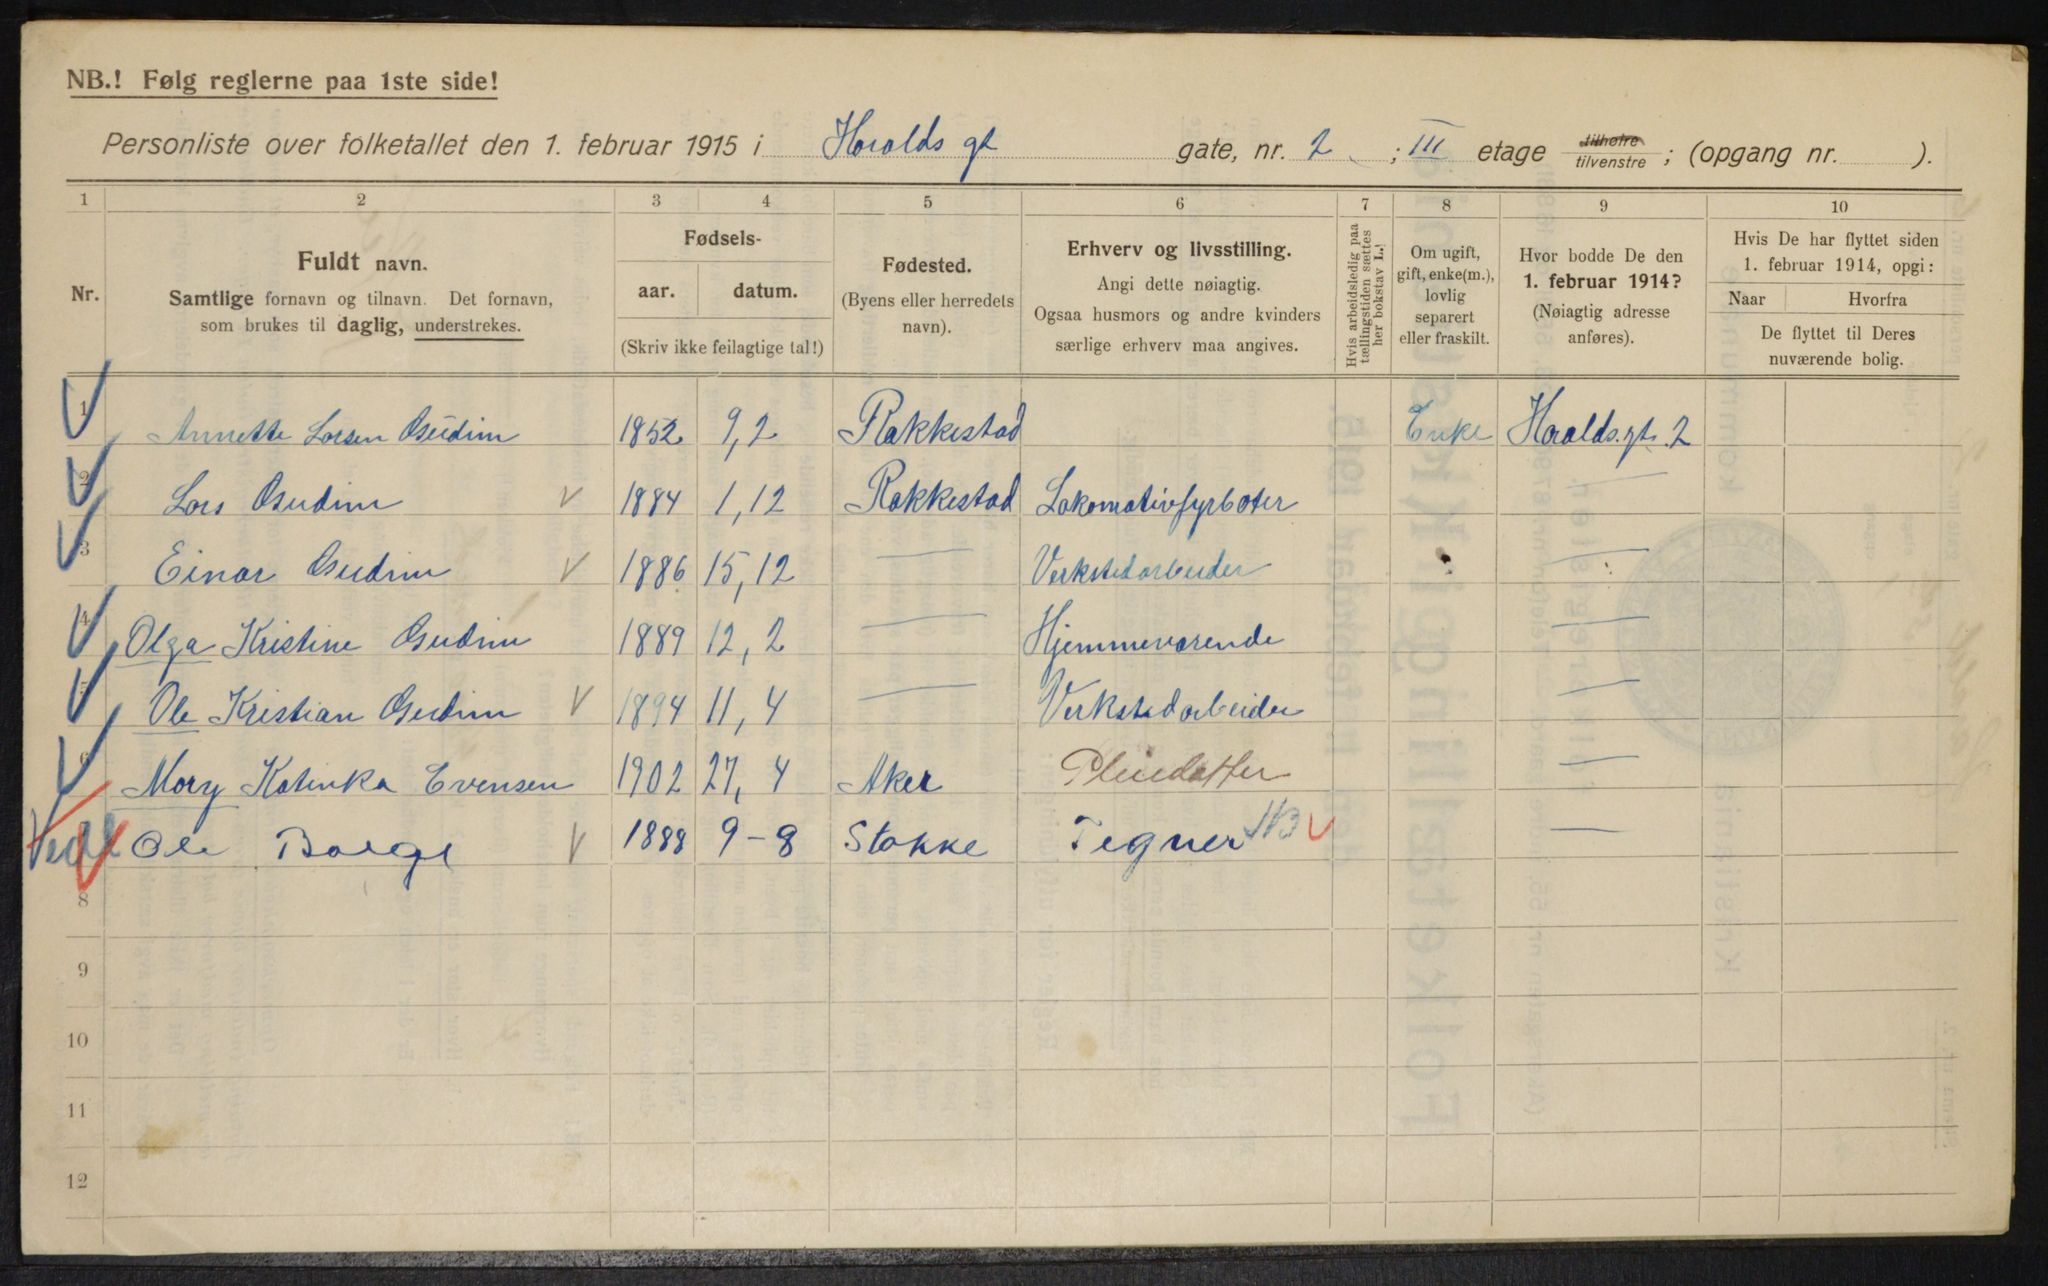 NB.! Følg reglerne paa 1ste side!
Personliste over folketallet den 1. februar 1915 i Haralds gt gate, nr. 2 ; III etage tilhøire tilvenstre ; (opgang nr. ).
1 2 3 4 5 6 7 8 9 10
Nr.
Fuldt navn.
Samtlige fornavn og tilnavn. Det fornavn,
som brukes til daglig, understrekes.
Fødsels-
aar. datum.
(Skriv ikke feilagtige tal!)
Fødested.
(Byens eller herredets
navn).
Erhverv og livsstilling.
Angi dette nøiagtig.
Ogsaa husmors og andre kvinders
særlige erhverv maa angives.
Hvis arbeidsledig paa
tællingstiden sættes
her bokstav L.!
Om ugift,
gift, enke(m.),
lovlig
separert
eller fraskilt.
Hvor bodde De den
1. februar 1914?
(Nøiagtig adresse
anføres).
Hvis De har flyttet siden
1. februar 1914, opgi:
Naar Hvorfra
De flyttet til Deres
nuværende bolig.
1 Annette Larsen Gudim 1852 9,2 Rakkestad Enke Haralds.gt. 2
2 Lars Gudim V 1884 1,12 Rakkestad Lokomotivfyrbøter —
3 Einar Gudim V 1886 15,12 — Verkstedarbeider —
4 Olga Kristine Gudim 1889 12,2 — Hjemmeværende —
5 Ole Kristian Gudim V 1894 11,4 — Verkstedarbeider —
6 Mary Katinka Evensen 1902 27,4 Aker Pleiedatter —
Ole Borge V 1888 9-8 Stokke Tegner —
8
9
10
11
12